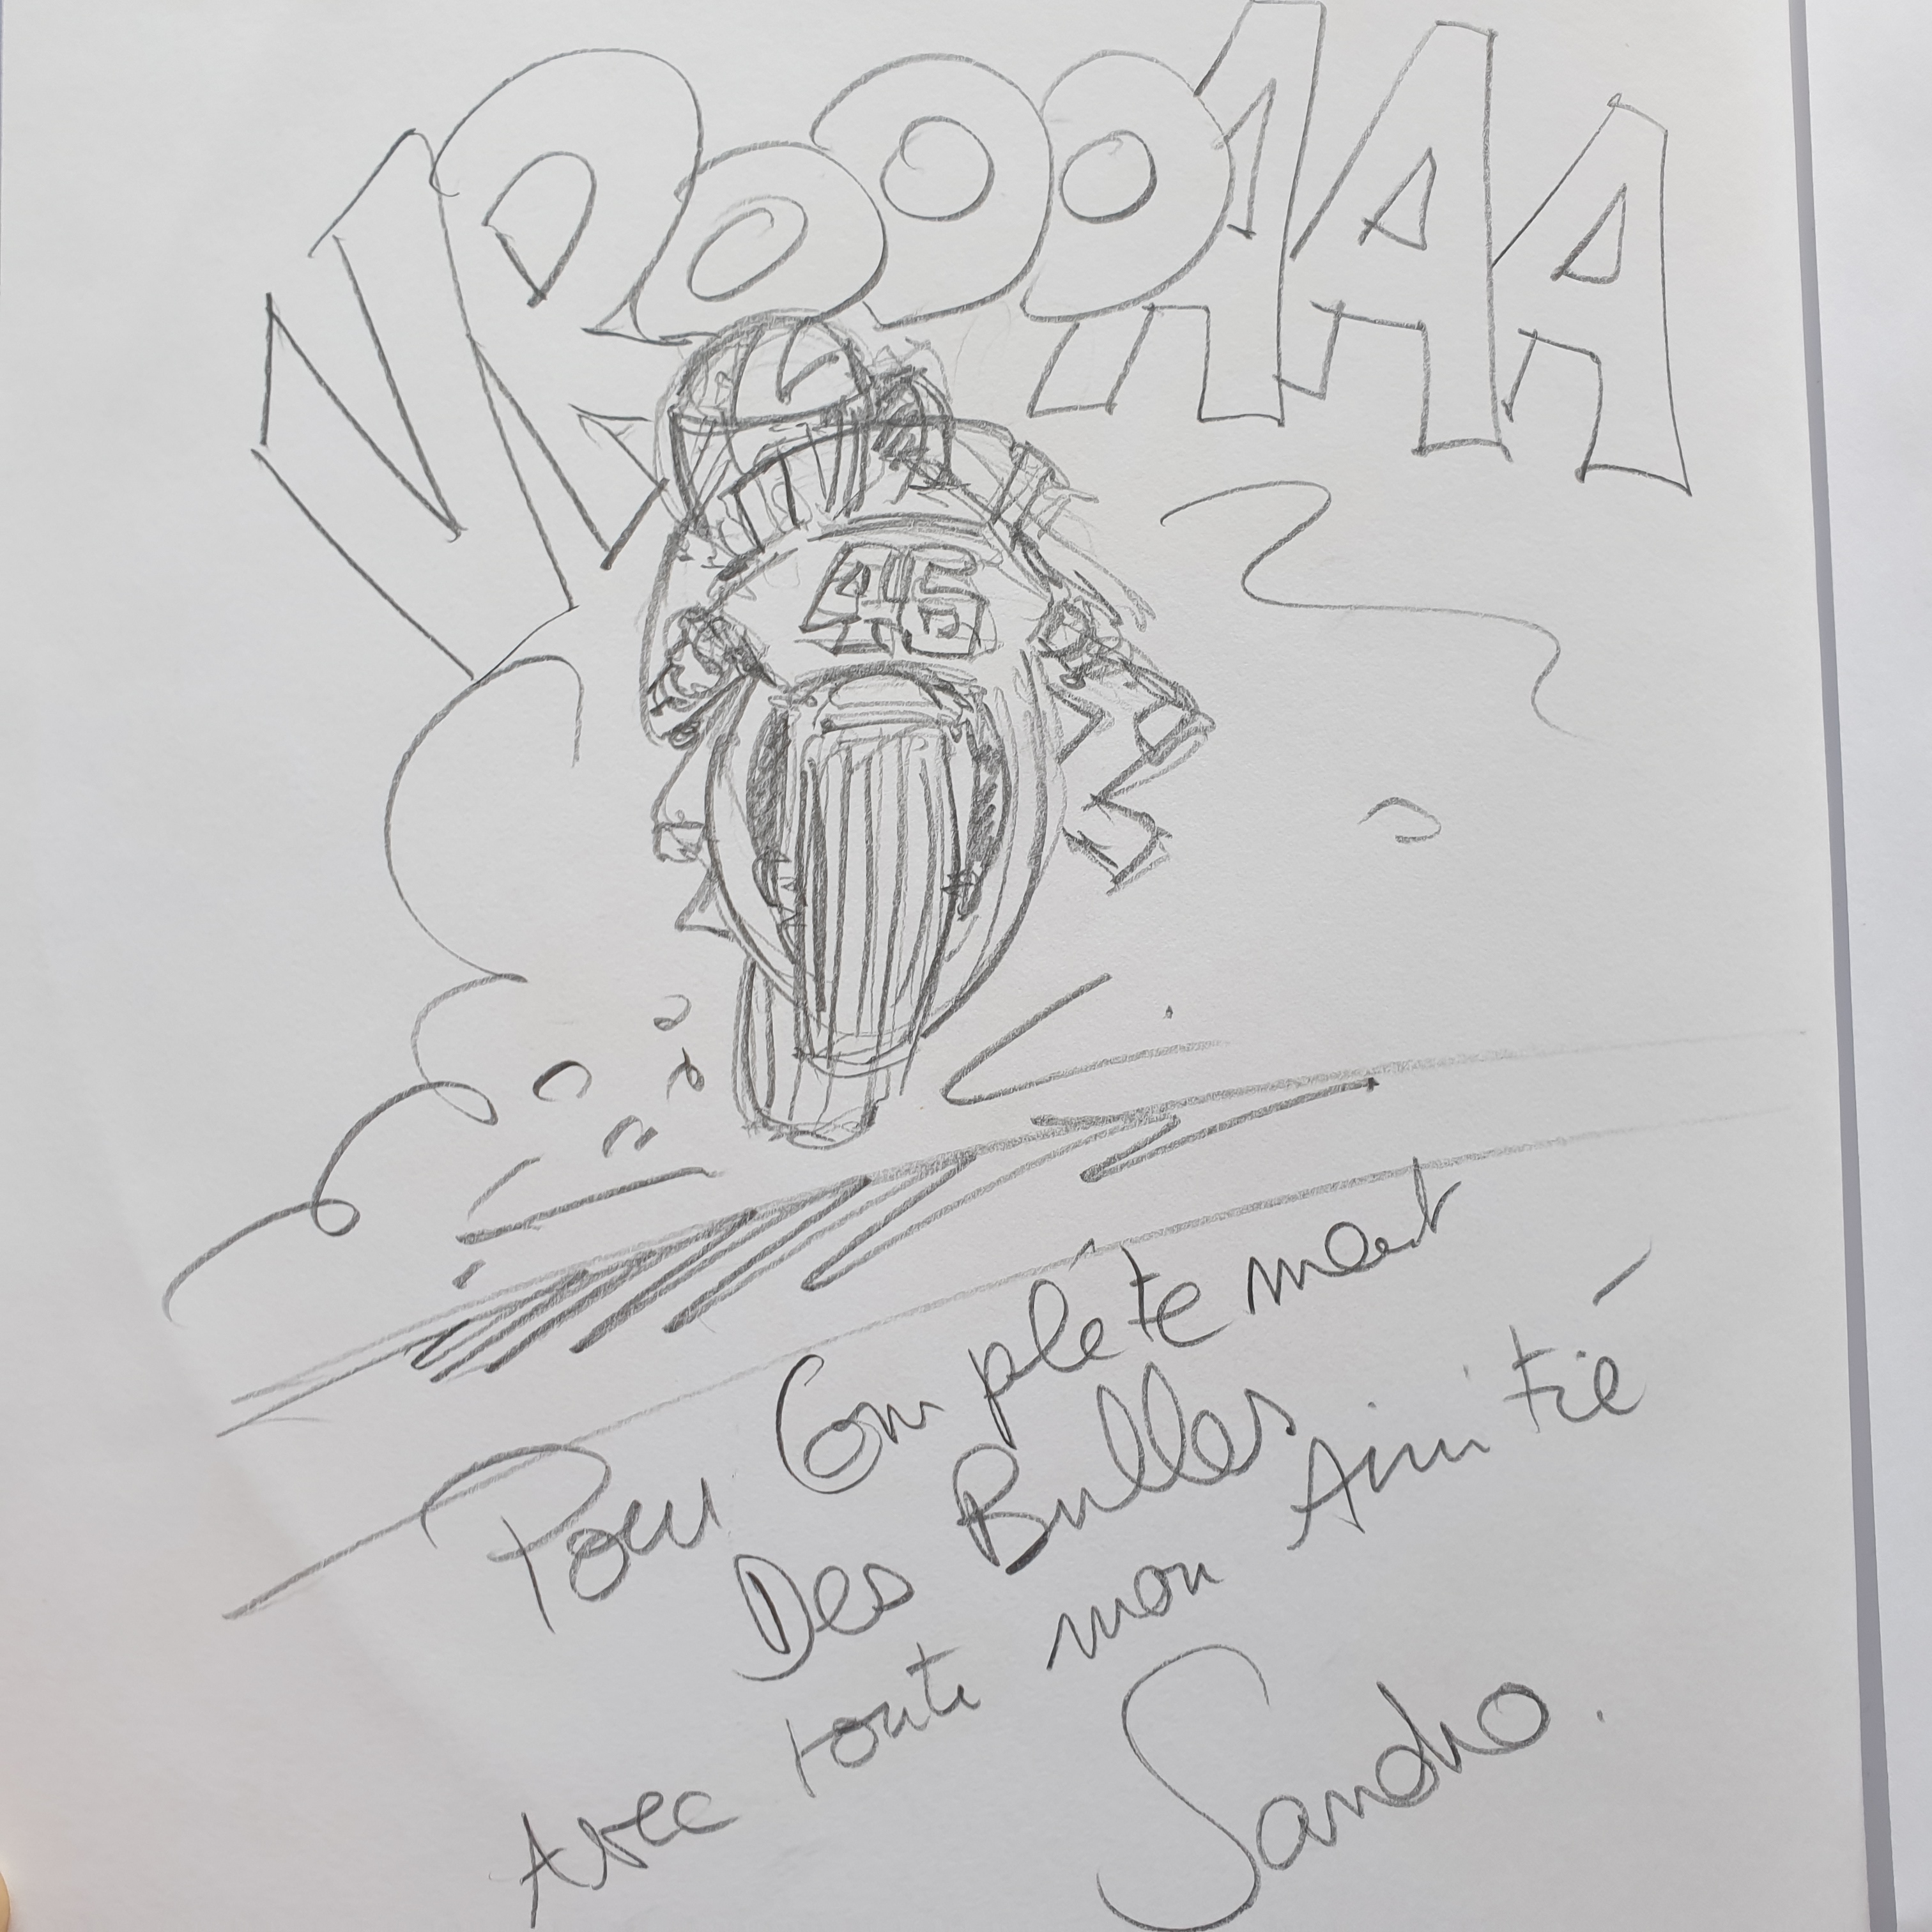 VROOOAAA
45
Pour Complètement
Des Bulles
Avec toute mon Amitié
Sandro.